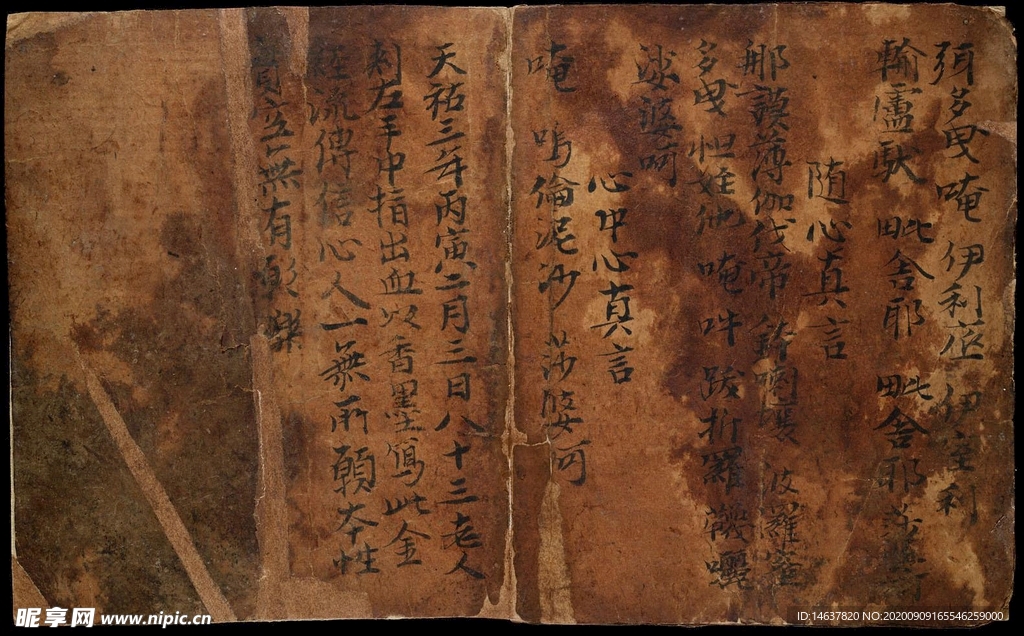 殑多曳唵伊利底伊室利
輸盧馱毗舍耶毗舍耶莎婆訶
随心真言
那謨薄伽伐帝鉢喇壤波羅蜜
多曳怛姪他唵吽跋折羅
莎婆呵
心中心真言
唵嗚倫泥沙莎婆訶
天祐三年丙寅二月三日八十三老人
刺左手中指出血以香墨寫此金
經流傳信心人一無所願本性
實空無有願樂
昵享网 www.nipic.cn
ID:14637820 NO:20200909165546259000